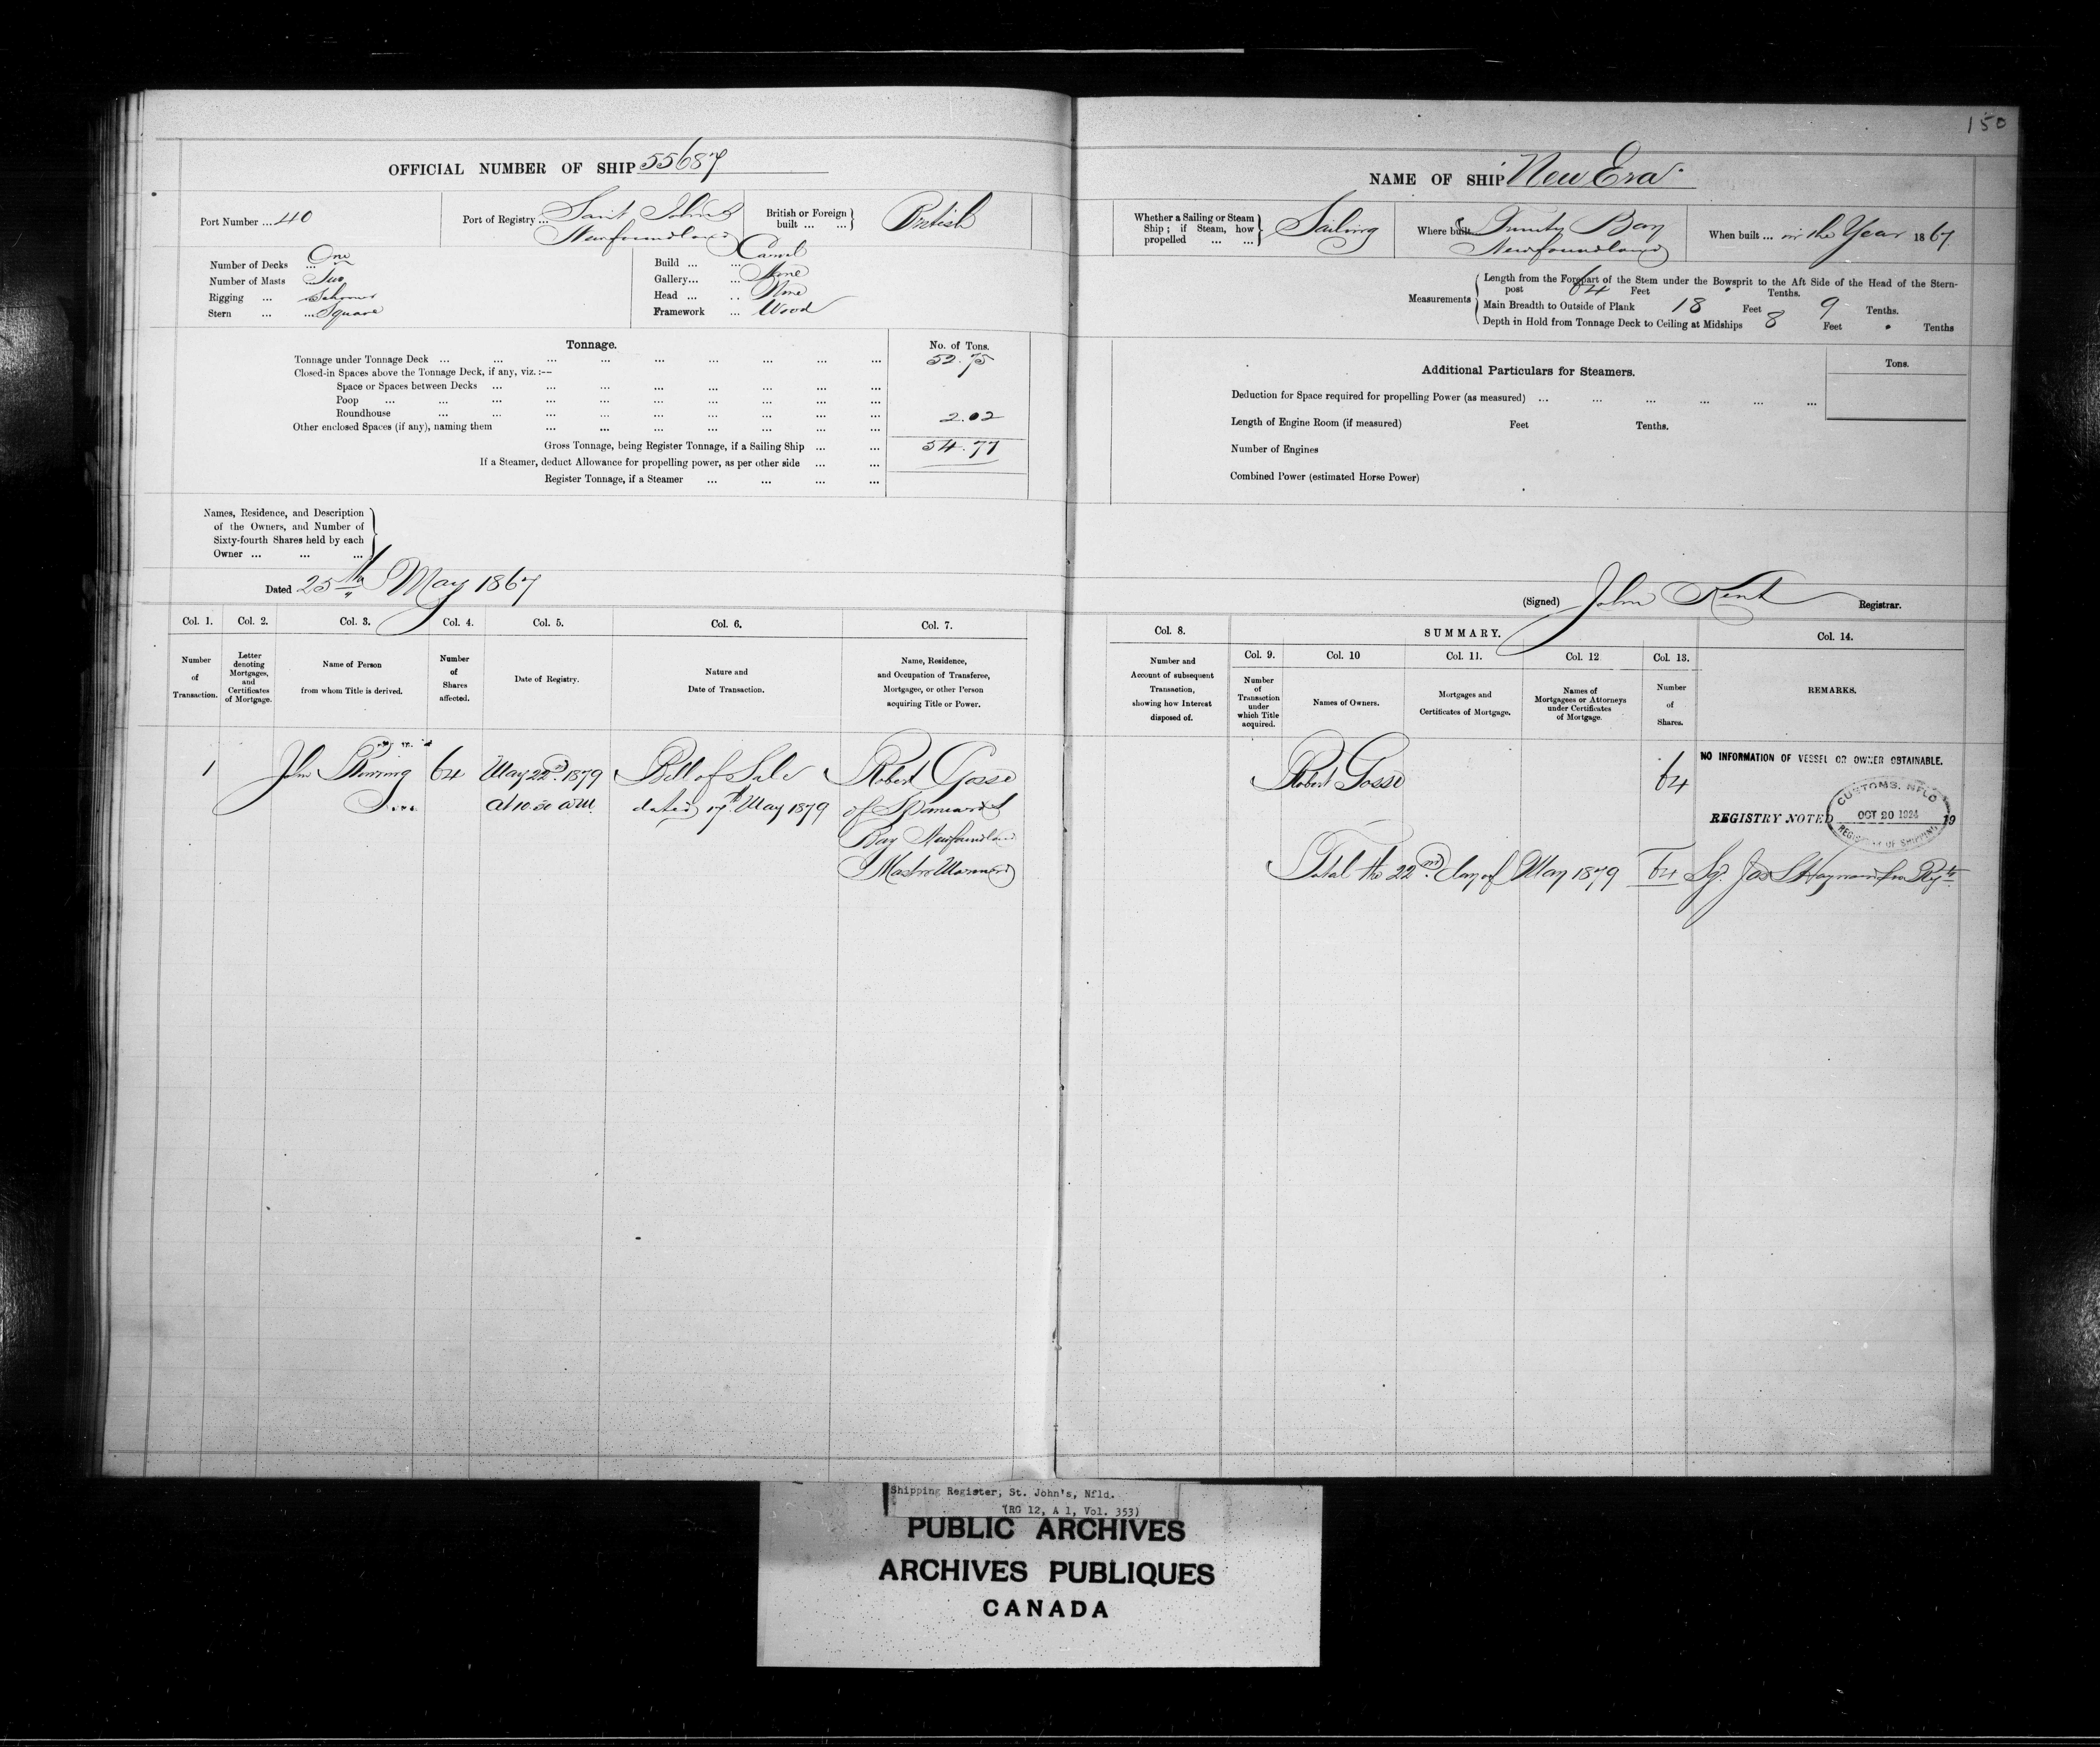 150
OFFICIAL NUMBER OF SHIP 55687
Port Number ... 40
Port of Registry ... Saint John's
Newfoundland
British or Foreign built ... ... British
Number of Decks ... One
Number of Masts ... Two
Rigging ... Schooner
Stern ... ... Square
Build ... ... Carvel
Gallery... ... None
Head ... .. None
Framework ... Wood
Tonnage.
No. of Tons.
Tonnage under Tonnage Deck ... ... ... ... ... ... ... ... 52.75
Closed-in Spaces above the Tonnage Deck, if any, viz. :--
Space or Spaces between Decks ... ... ... ... ... ... ... ...
Poop ... ... ... ... ... ... ... ... ...
Roundhouse ... ... ... ... ... ... ... ... 2.02
Other enclosed Spaces (if any), naming them ... ... ... ... ... ... ...
Gross Tonnage, being Register Tonnage, if a Sailing Ship ... ... 54.77
If a Steamer, deduct Allowance for propelling power, as per other side ... ...
Register Tonnage, if a Steamer ... ... ... ...
Names, Residence, and Description
of the Owners, and Number of
Sixty-fourth Shares held by each
Owner ... ... ...
Dated 25th May 1867
Col. 1. Col. 2. Col. 3. Col. 4. Col. 5. Col. 6. Col. 7.
Number
of
Transaction.
Letter
denoting
Mortgages,
and
Certificates
of Mortgage.
Name of Person
from whom Title is derived.
Number
of
Shares
affected.
Date of Registry.
Nature and
Date of Transaction.
Name, Residence,
and Occupation of Transferee,
Mortgagee, or other Person
acquiring Title or Power.
1
John
64
May 22nd 1879
at 10.30 a.m.
Bill of Sale
dated 17th May 1879
Robert Gosse
of Spaniards
Bay Newfoundland
Master Mariner
NAME OF SHIP New Era
Whether a Sailing or Steam
Ship ; if Steam, how
propelled ... ...
Sailing
Where built Trinity Bay
Newfoundland
When built ... in the Year 1867
Measurements
Length from the Forepart of the Stem under the Bowsprit to the Aft Side of the Head of the Stern-
post 64 Feet . Tenths.
Main Breadth to Outside of Plank 18 Feet 9 Tenths.
Depth in Hold from Tonnage Deck to Ceiling at Midships 8 Feet . Tenths
Additional Particulars for Steamers.
Tons.
Deduction for Space required for propelling Power (as measured) ... ... ... ... ... ...
Length of Engine Room (if measured) Feet Tenths.
Number of Engines
Combined Power (estimated Horse Power)
(Signed) John Kent Registrar.
Col. 8.
SUMMARY.
Col. 9. Col. 10 Col. 11. Col. 12 Col. 13.
Col. 14.
Number and
Account of subsequent
Transaction,
showing how Interest
disposed of.
Number
of
Transaction
under
which Title
acquired.
Names of Owners.
Mortgages and
Certificates of Mortgage.
Names of
Mortgagees or Attorneys
under Certificates
of Mortgage.
Number
of
Shares.
REMARKS.
Robert Gosse
64
NO INFORMATION OF VESSEL OR OWNER OBTAINABLE.
REGISTRY NOTED 19
CUSTOMS. NFLD
OCT 20 1924
REGISTRY OF SHIPPING
Total the 22nd day of May 1879 64
Shipping Register, St. John's, Nfld.
(RG 12, A 1, Vol. 353)
PUBLIC ARCHIVES
ARCHIVES PUBLIQUES
CANADA